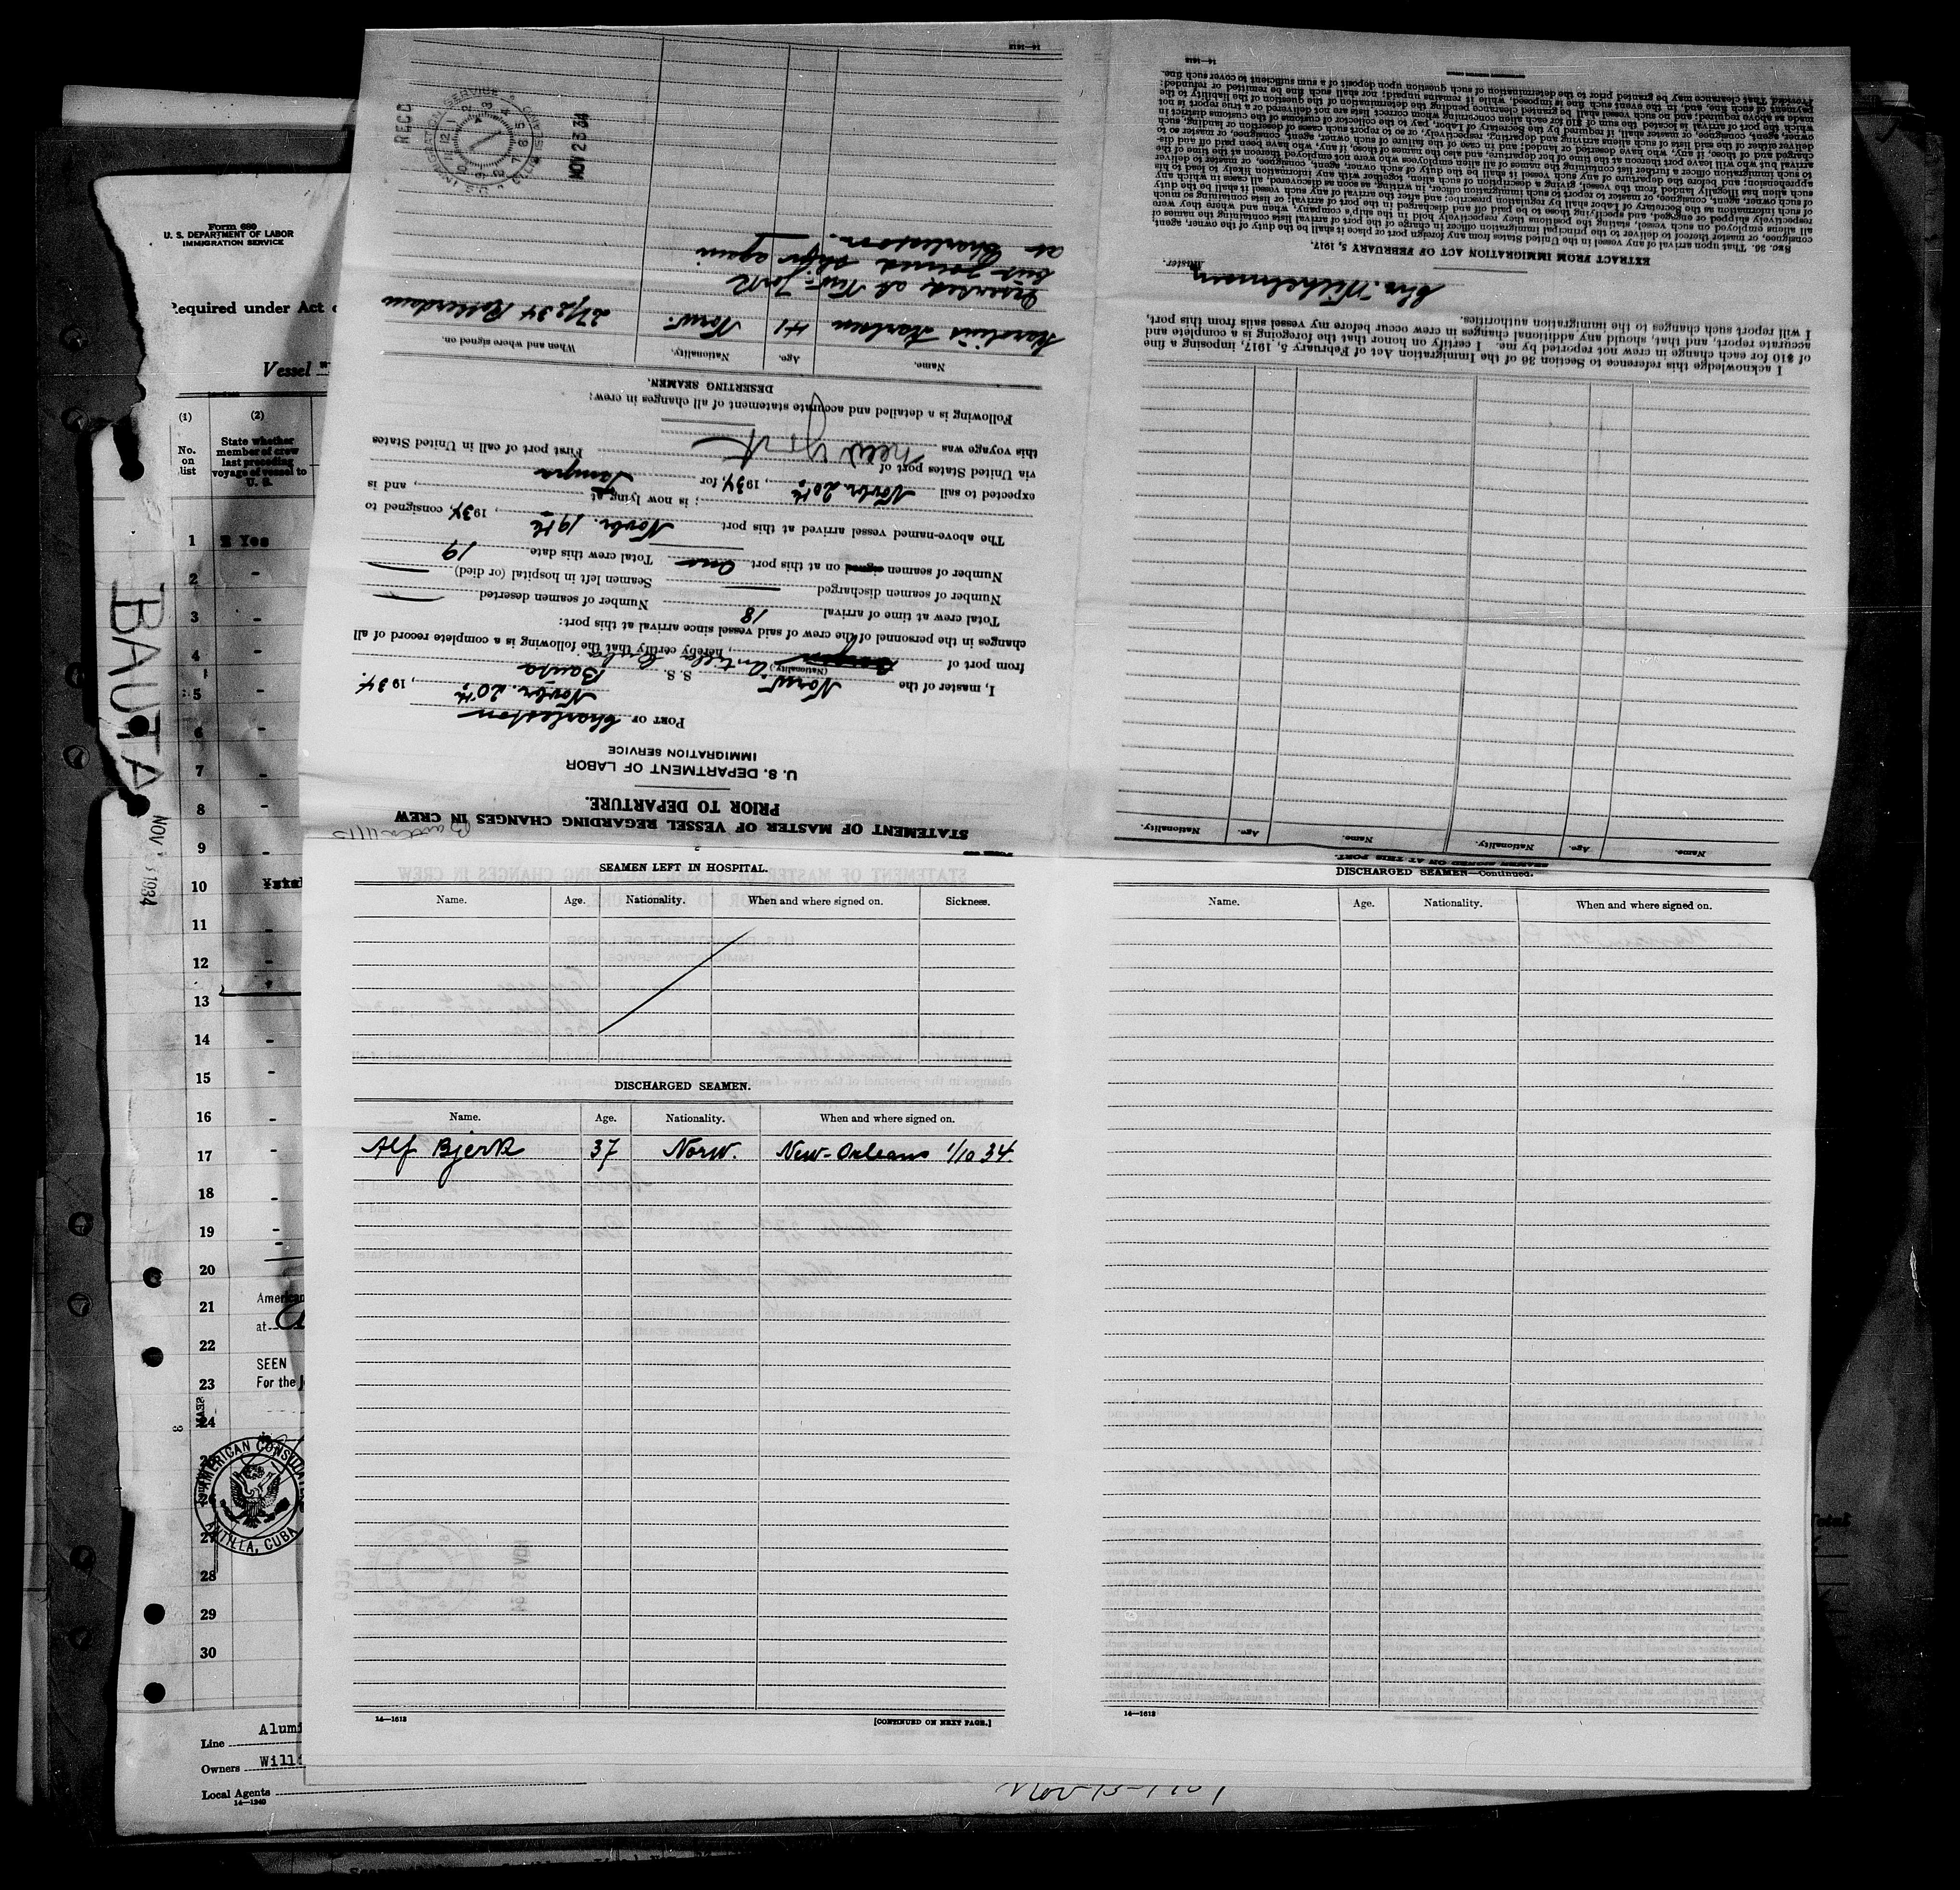 Form 680
U. S. DEPARTMENT OF LABOR
IMMIGRATION SERVICE
Required under Act
Vessel
(1) (2)
No. on list
State whether member of crew last preceding voyage of vessel to U. S.
1 Yes
2 -
3 -
4 -
5 -
6 -
7 -
8 -
9 -
10
11 -
12 -
13
14 -
15 -
16 -
17 -
18 -
19 -
20
21
22
23
24
26
27
28
29
30
BAUTA
NOV 1934
American
at
SEEN
For the
AMERICAN CONSULATE
ANTILLA, CUBA
Line Alumi
Owners Will
Local Agents
14—1240
STATEMENT OF MASTER OF VESSEL REGARDING CHANGES IN CREW
PRIOR TO DEPARTURE.
U. S. DEPARTMENT OF LABOR
IMMIGRATION SERVICE
PORT OF Charleston
Novbr. 20th, 1934.
I, master of the Norw. S. S. Bauta
(Nationality)
from port of Antilla Cuba, hereby certify that the following is a complete record of all
changes in the personnel of the crew of said vessel since arrival at this port:
Total crew at time of arrival 18 Number of seamen deserted
Number of seamen discharged Seamen left in hospital (or died)
Number of seamen signed on at this port one Total crew this date 19
The above-named vessel arrived at this port Novbr. 19th, 1934, consigned to
; is now lying at , and is
expected to sail Novbr. 20th, 1934, for Tampa
via United States port of First port of call in United States
this voyage was New York
Following is a detailed and accurate statement of all changes in crew:
DESERTING SEAMEN.
Name. Age. Nationality. When and where signed on.
Karolius Karlsen 41 Norw. 27/2 34 Rotterdam
Deserted at New-York
but joined ship again
at Charleston.
REC'D
U. S. IMMIGRATION SERVICE
NOV 23 34
14—1613
SEAMEN SIGNED ON AT THIS PORT.
Name. Age. Nationality. Name. Age. Nationality.
I acknowledge this reference to Section 36 of the Immigration Act of February 5, 1917, imposing a fine
of $10 for each change in crew not reported by me. I certify on honor that the foregoing is a complete and
accurate report, and that, should any additional changes in crew occur before my vessel sails from this port,
I will report such changes to the immigration authorities.
Chr. Wilhelmsen
Master.
EXTRACT FROM IMMIGRATION ACT OF FEBRUARY 5, 1917.
SEC. 36. That upon arrival of any vessel in the United States from any foreign port or place it shall be the duty of the owner, agent,
consignee, or master thereof to deliver to the principal immigration officer in charge of the port of arrival lists containing the names of
all aliens employed on such vessel, stating the positions they respectively hold in the ship's company, when and where they were
respectively shipped or engaged, and specifying those to be paid off and discharged in the port of arrival; or lists containing so much
of such information as the Secretary of Labor shall by regulation prescribe; and after the arrival of any such vessel it shall be the duty
of such owner, agent, consignee, or master to report to such immigration officer, in writing, as soon as discovered, all cases in which any
such alien has illegally landed from the vessel, giving a description of such alien, together with any information likely to lead to his
apprehension; and before the departure of any such vessel it shall be the duty of such owner, agent, consignee, or master to deliver
to such immigration officer a further list containing the names of all alien employees who were not employed thereon at the time of the
arrival but who will leave port thereon at the time of her departure, and also the names of those, if any, who have been paid off and dis-
charged and of those, if any, who have deserted or landed; and in case of the failure of such owner, agent, consignee, or master so to
deliver either of the said lists of such aliens arriving and departing, respectively, or so to report such cases of desertion or landing, such
owner, agent, consignee, or master, shall, if required by the Secretary of Labor, pay to the collector of customs of the customs district in
which the port of arrival is located the sum of $10 for each alien concerning whom correct lists are not delivered or a true report is not
made as above required; and no such vessel shall be granted clearance pending the determination of the question of the liability to the
payment of such fine, and, in the event such fine is imposed, while it remains unpaid; nor shall such fine be remitted or refunded:
Provided, That clearance may be granted prior to the determination of such question upon deposit of a sum sufficient to cover such fine.
14—1613
SEAMEN LEFT IN HOSPITAL.
Name. Age. Nationality. When and where signed on. Sickness.
DISCHARGED SEAMEN.
Name. Age. Nationality. When and where signed on.
Alf Bjerk 37 Norw. New-Orleans 1/10 34.
14—1613 [CONTINUED ON NEXT PAGE.]
DISCHARGED SEAMEN—Continued.
Name. Age. Nationality. When and where signed on.
14—1613